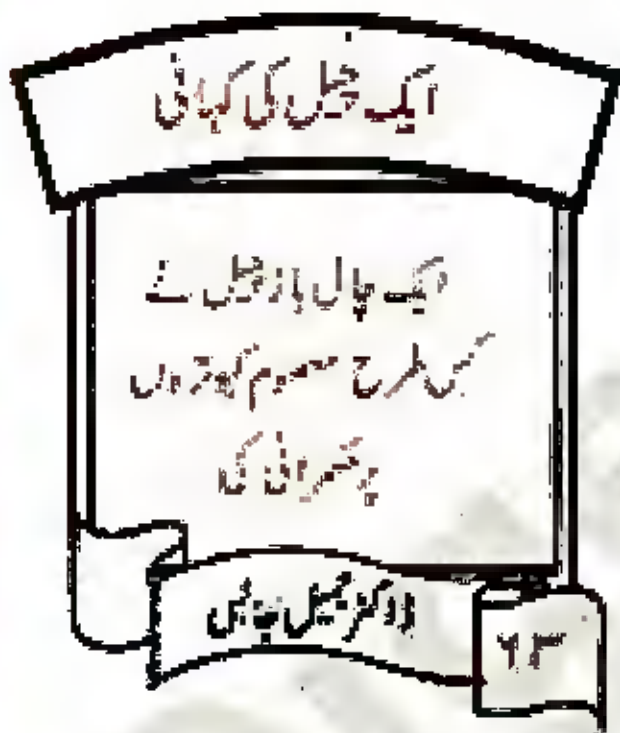 ایک چیل کی کہانی
ایک چال باز چیل نے
کس طرح معصوم کبوتروں
پر حکمرانی کی
ڈاکٹر جمیل جالبی
۶۳